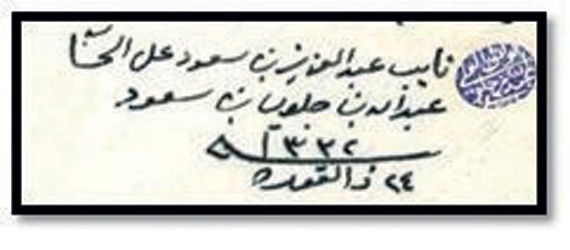 نايب عبدالعزيز بن سعود على الحسا
عبدالله بن جلوي بن سعود
١٣٣٢
٢٤ ذالقعده